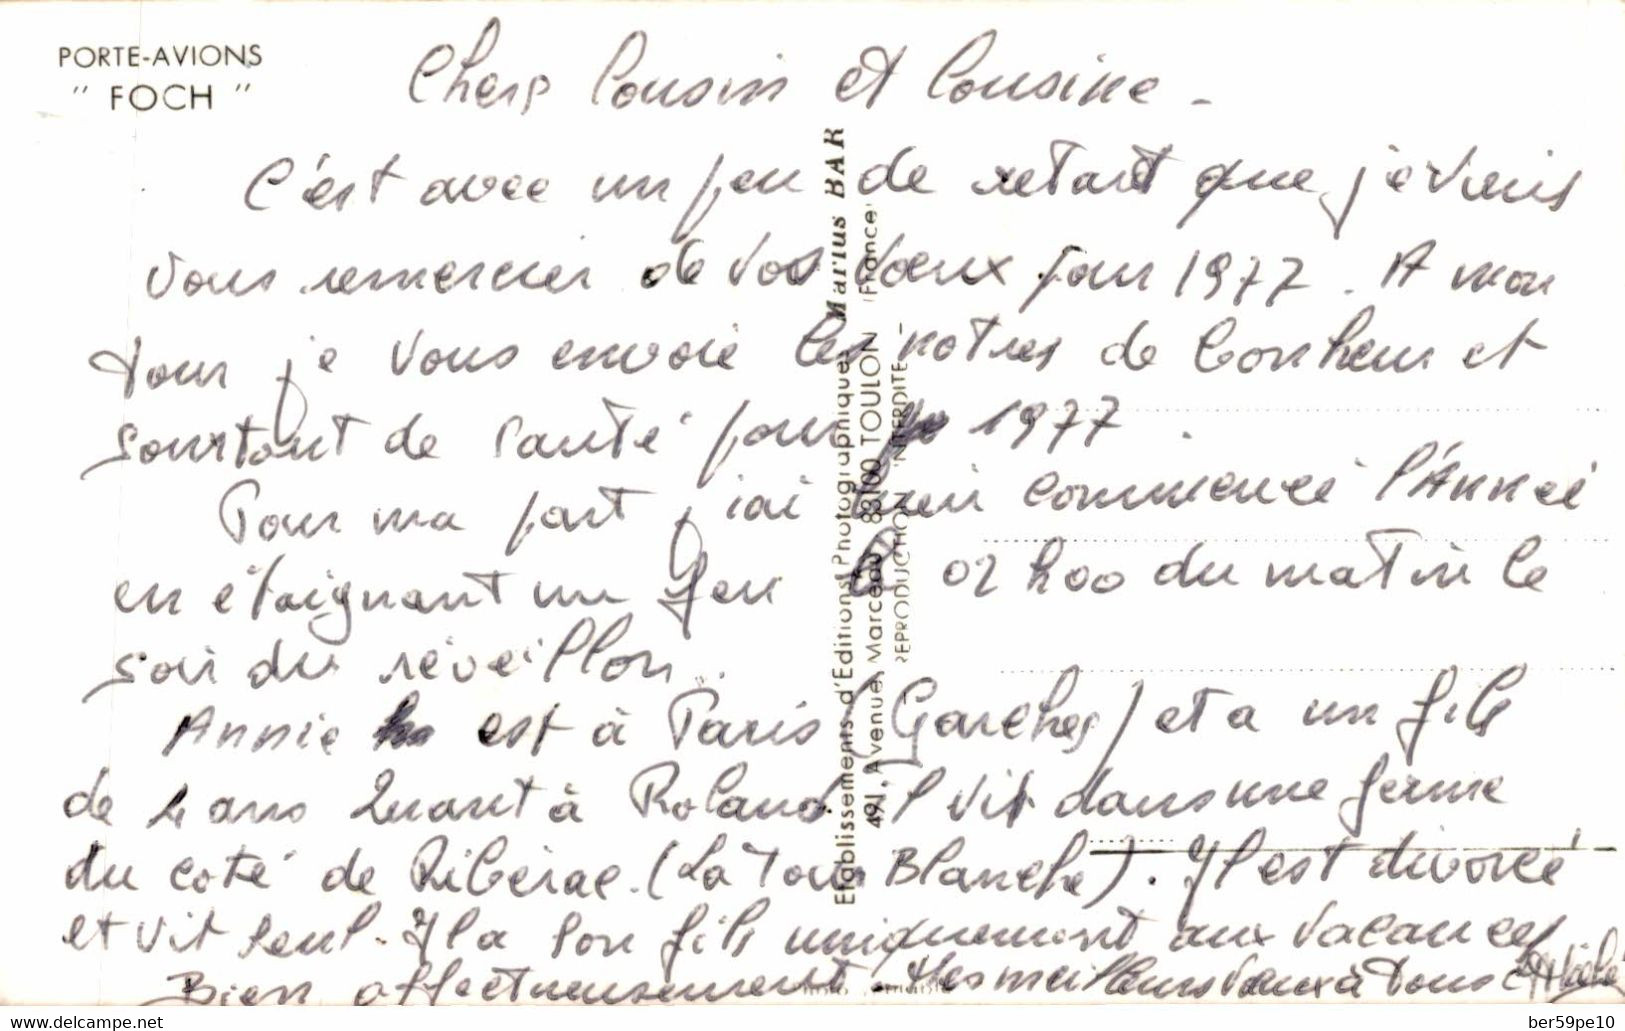 PORTE-AVIONS
" FOCH "
Chers Cousins et Cousine -
C'est avec un peu de retard que je viens
vous remercier de vos voeux pour 1977. A mon
tour je vous envoie les notres de bonheur et
surtout de santé pour 1977.
Pour ma part j'ai bien commencé l'Année
en éteignant un feu à 02 h00 du matin le
soir du réveillon.
Annie est à Paris (Garches) et a un fils
de 4 ans Quant à Roland il vit dans une ferme
du coté de Ribérac. (La Tour Blanche). Il est divorcé
et vit seul. Il a son fils uniquement aux vacances
Bien affectueusement. Mes meilleurs vœux à tous
Etablissements d'Editions Photographiques Marius BAR
491, Avenue Marceau 83100 TOULON (France)
REPRODUCTION INTERDITE -
www.delcampe.net
ber59pe10